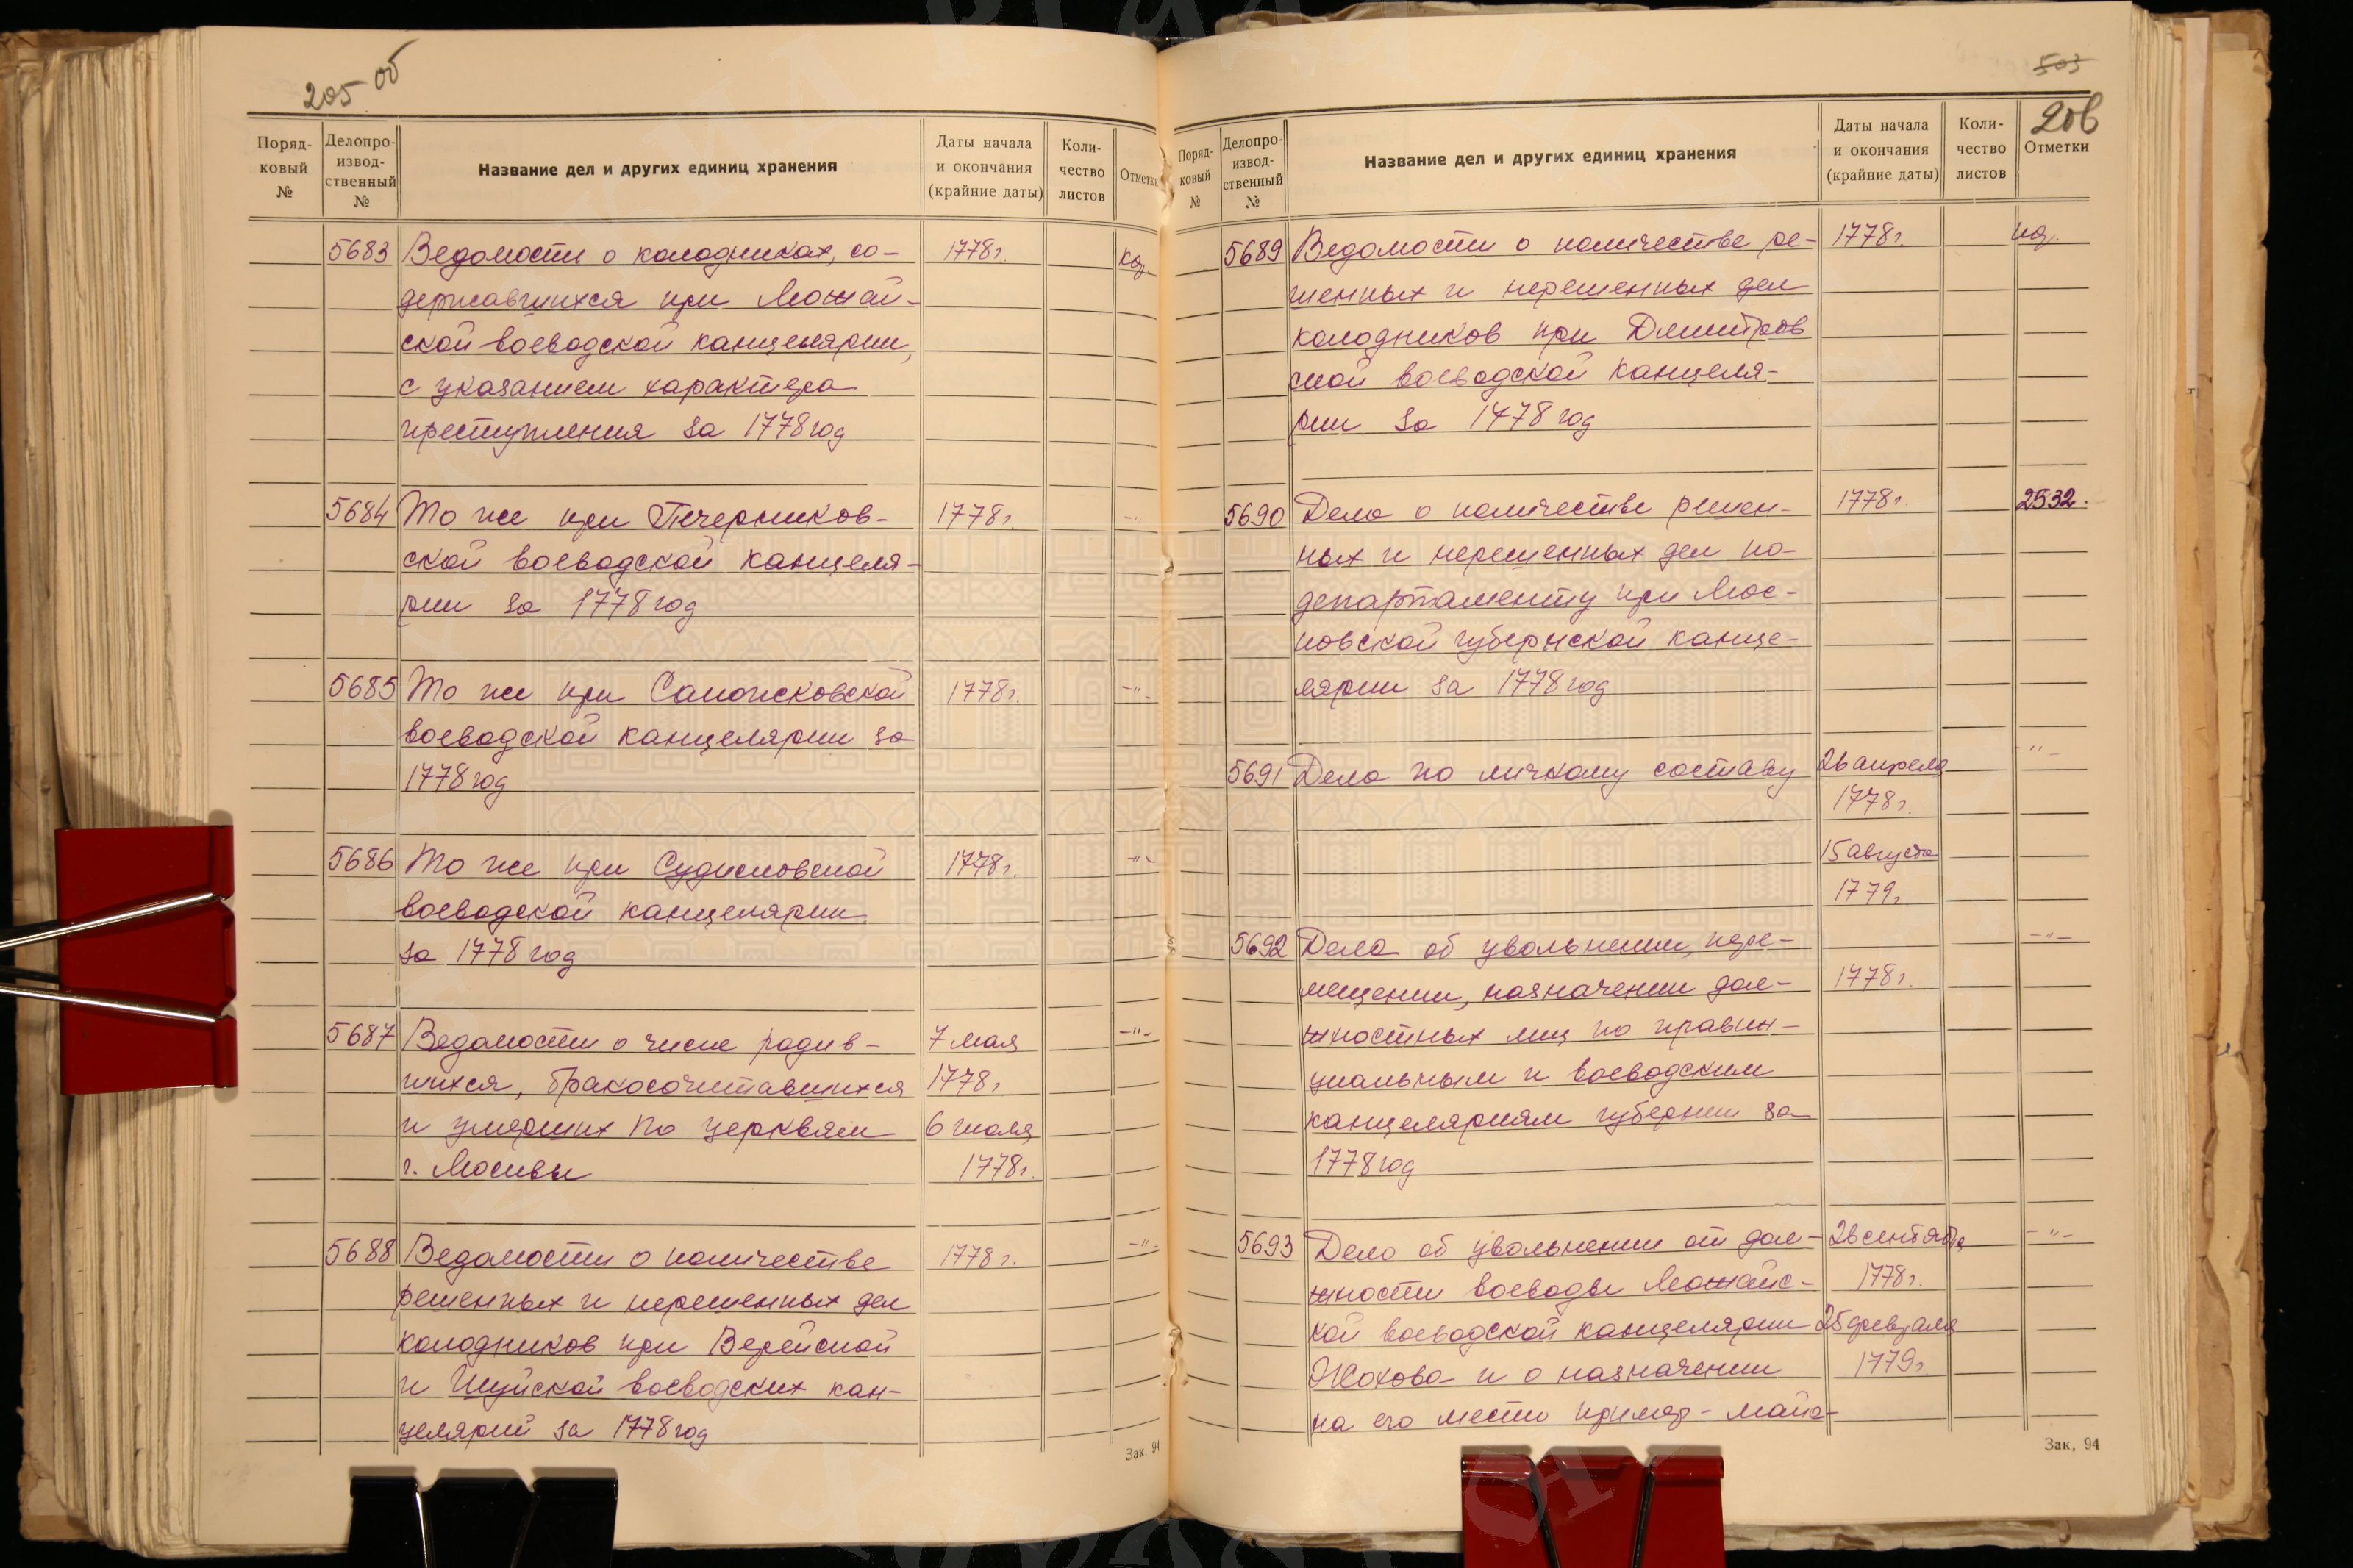 205 об
Поряд-
ковый
№
Делопро-
извод-
ственный
№
Название дел и других единиц хранения
Даты начала
и окончания
(крайние даты)
Коли-
чество
листов
Отметк
5683 Ведомости о колодниках, со- 1778 г.
державшихся при Можай-
ской воеводской канцелярии,
с указанием характера
преступления за 1778 год
5684 То же при Печерников- 1778 г. -"-
ской воеводской канцеля-
рии за 1778 год
5685 То же при Сапожковской 1778 г. -"-
воеводской канцелярии за
1778 год
5686 То же при Судисловской 1778 г. -"-
воеводской канцелярии
за 1778 год
5687 Ведомости о числе родив- 7 мая -"-
шихся, бракосочетавшихся 1778 г
и умерших по церквям 6 июля
г. Москвы 1778 г.
5688 Ведомости о количестве 1778 г. -"-
решенных и нерешенных дел
колодников при Верейской
и Шуйской воеводских кан-
целярий за 1778 год
Зак. 94
503
206
Поряд-
ковый
№
Делопро-
извод-
ственный
№
Название дел и других единиц хранения
Даты начала
и окончания
(крайние даты)
Коли-
чество
листов
Отметки
5689 Ведомости о количестве ре- 1778 г.
шенных и нерешенных дел
колодников при Дмитров
ской воеводской канцеля-
рии за 1778 год
5690 Дело о количестве решен- 1778 г. 2532.
ных и нерешенных дел по
департаменту при Мос-
ковской губернской канце-
лярии за 1778 год
5691 Дело по личному составу 26 апреля -"-
1778 г.
15 августа
1779 г.
5692 Дело об увольнении, пере- -"-
мещении, назначении дол- 1778 г.
жностных лиц по провин-
циальным и воеводским
канцеляриям губернии за
1778 год
5693 Дело об увольнении от дол- 26 сентября -"-
жности воеводы Можайс- 1778 г.
кой воеводской канцелярии 25 февраля
Жохова и о назначении 1779 г.
на его место
Зак. 94